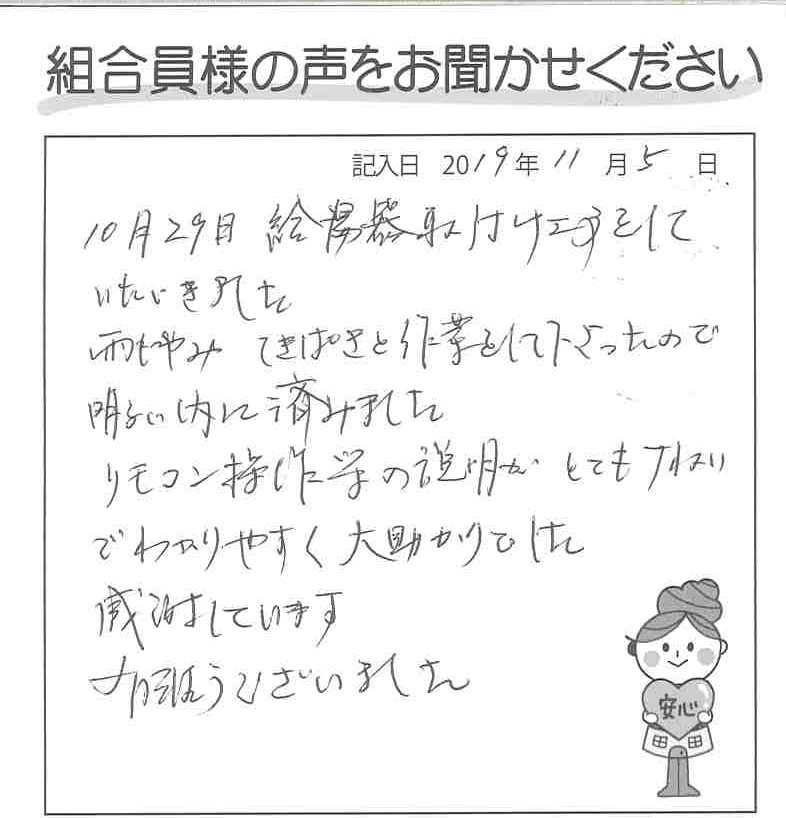 組合員様の声をお聞かせください
記入日 2019年11月5日
10月29日 給湯器取付け工事をして
いただきました
雨もやみ てきぱきと作業をして下さったので
明るい内に済みました
リモコン操作等の説明が とても
でわかりやすく大助かりでした
感謝しています
有難うございました
安心